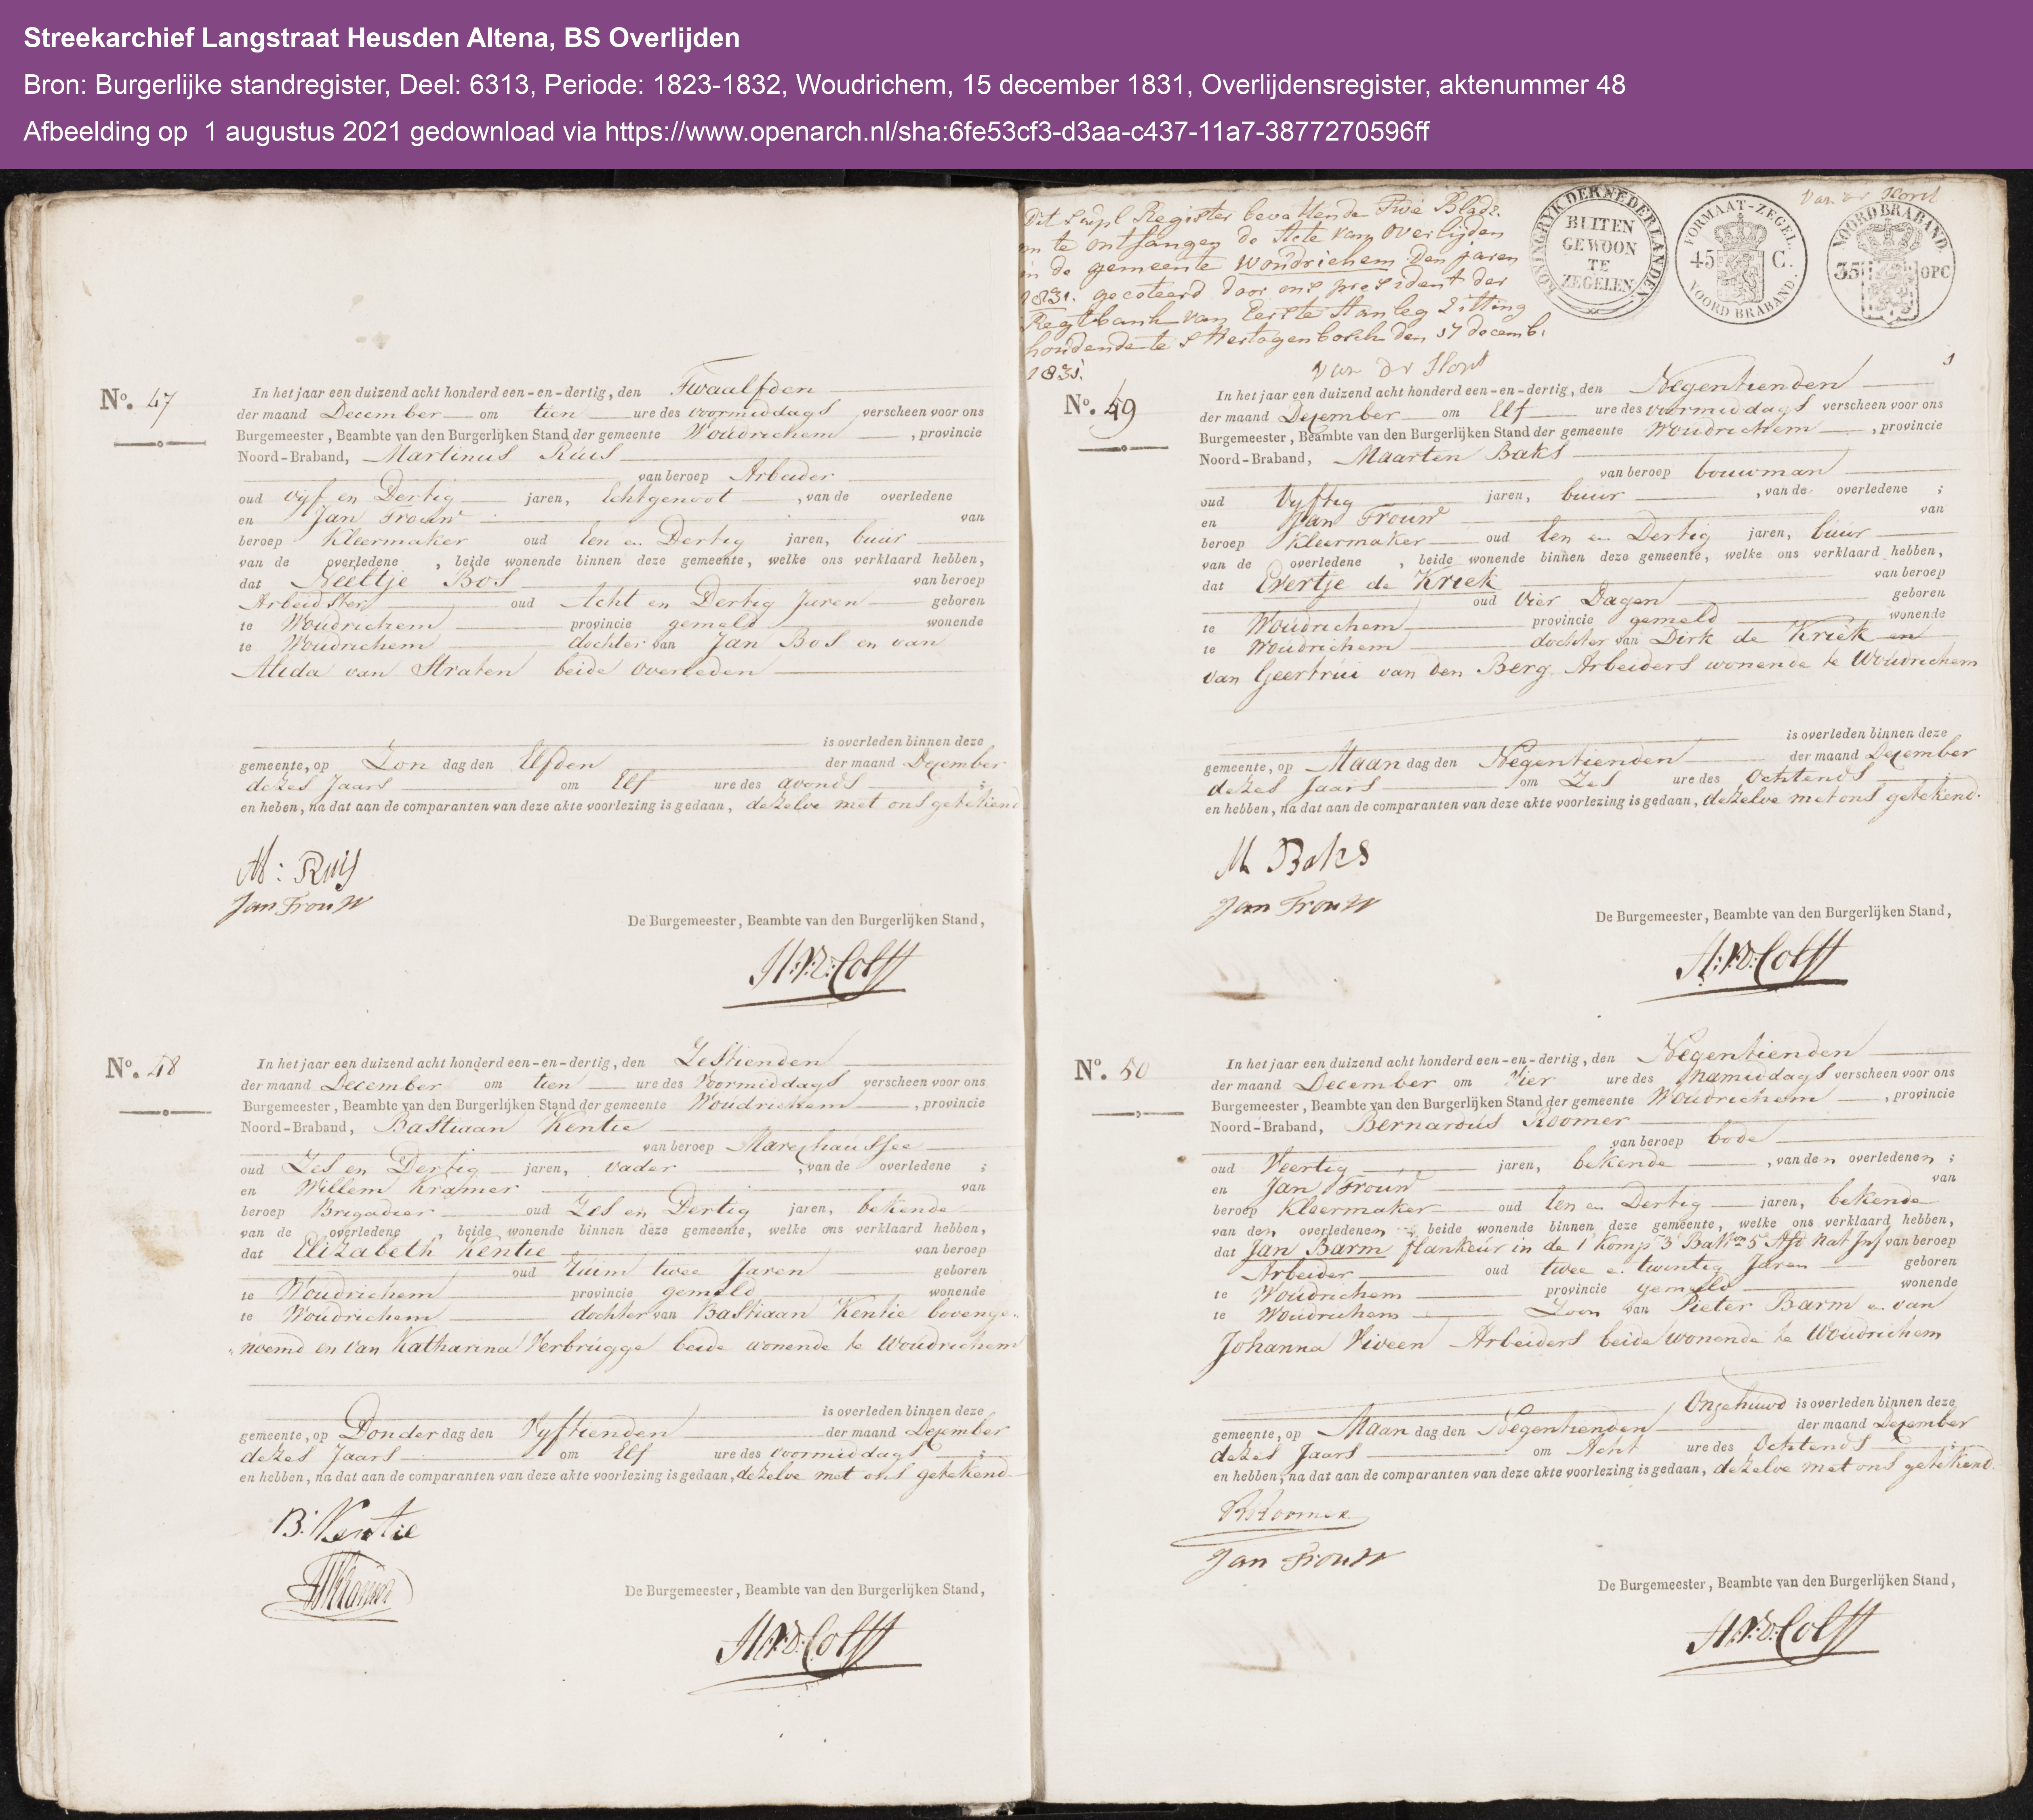 Streekarchief Langstraat Heusden Altena, BS Overlijden
Bron: Burgerlijke standregister, Deel: 6313, Periode: 1823-1832, Woudrichem, 15 december 1831, Overlijdensregister, aktenummer 48
Afbeelding op 1 augustus 2021 gedownload via https://www.openarch.nl/sha:6fe53cf3-d3aa-c437-11a7-3877270596ff
No. 47
In het jaar een duizend acht honderd een-en-dertig, den Twaalfden
der maand December om tien ure des voormiddags verscheen voor ons
Burgemeester, Beambte van den Burgerlijken Stand der gemeente Woudrichem, provincie
Noord-Braband, Martinus Ruis
van beroep Arbeider
oud vyf en Dertig jaren, Echtgenoot, van de overledene
en Jan Trouw van
beroep Kleermaker oud Een en Dertig jaren, buur
van de overledene, beide wonende binnen deze gemeente, welke ons verklaard hebben,
dat Neeltje Bos van beroep
Arbeidster oud Acht en Dertig Jaren geboren
te Woudrichem provincie gemeld wonende
te Woudrichem dochter van Jan Bos en van
Alida van Straten beide overleden
is overleden binnen deze
gemeente, op Zon dag den Elfden der maand December
dezes Jaars om Elf ure des avonds;
en heben, na dat aan de comparanten van deze akte voorlezing is gedaan, dezelve met ons getekend
M: Ruis
Jan Trouw
De Burgemeester, Beambte van den Burgerlijken Stand,
H:V:D:Colff
No. 48
In het jaar een duizend acht honderd een-en-dertig, den Zestienden
der maand December om tien ure des Voormiddags verscheen voor ons
Burgemeester, Beambte van den Burgerlijken Stand der gemeente Woudrichem, provincie
Noord-Braband, Bastiaan Kentie
van beroep Marechaussee
oud Zes en Dertig jaren, vader, van de overledene;
en Willem Kramer van
beroep Brigadier oud Zes en Dertig jaren, bekende
van de overledene, beide wonende binnen deze gemeente, welke ons verklaard hebben,
dat Elizabeth Kentie van beroep
oud ruim twee Jaren geboren
te Woudrichem provincie gemeld wonende
te Woudrichem dochter van Bastiaan Kentie bovenge-
noemd en van Katharina Verbrugge beide wonende te Woudrichem
is overleden binnen deze
gemeente, op Donder dag den Vyftienden der maand December
dezes Jaars om Elf ure des voormiddags;
en hebben, na dat aan de comparanten van deze akte voorlezing is gedaan, dezelve met ons getekend
B: Kentie
WKramer
De Burgemeester, Beambte van den Burgerlijken Stand,
H:V:D:Colff
Dit supl Register bevattende Twe Bladz.
om te ontfangen de Acte van Overlijden
in de gemeente Woudrichem Den jaren
1831. gecoteerd door ons president der
Regtbank van Eerste Aanleg Zitting
houdende te s Hertogenbosch den 17 decemb.
1831.
van Dr Horst
KONINGRYK DER NEDERLANDEN
BUITEN
GEWOON
TE
ZEGELEN
FORMAAT-ZEGEL.
45 C.
NOORD BRABAND.
van Dr Horst
NOORD BRABAND.
35 OPC
1
No. 49
In het jaar een duizend acht honderd een-en-dertig, den Negentienden
der maand Dezember om Elf ure des voormiddags verscheen voor ons
Burgemeester, Beambte van den Burgerlijken Stand der gemeente Woudrichem, provincie
Noord-Braband, Maarten Baks
van beroep bouwman
oud Vyftig jaren, buur, van de overledene;
en Jan Trouw van
beroep Kleermaker oud Een en Dertig jaren, buur
van de overledene, beide wonende binnen deze gemeente, welke ons verklaard hebben,
dat Evertje de Kriek van beroep
oud Vier Dagen geboren
te Woudrichem provincie gemeld wonende
te Woudrichem dochter van Dirk de Kriek en
van Geertrui van den Berg Arbeiders wonende te Woudrichem
is overleden binnen deze
gemeente, op Maan dag den Negentienden der maand Dezember
dezes Jaars om Zes ure des Ochtends;
en hebben, na dat aan de comparanten van deze akte voorlezing is gedaan, dezelve met ons getekend.
M Baks
Jan Trouw
De Burgemeester, Beambte van den Burgerlijken Stand,
H:V:D:Colff
No. 50
In het jaar een duizend acht honderd een-en-dertig, den Negentienden
der maand December om Vier ure des Namiddags verscheen voor ons
Burgemeester, Beambte van den Burgerlijken Stand der gemeente Woudrichem, provincie
Noord-Braband, Bernardus Roomer
van beroep bode
oud Veertig jaren, bekende, van den overledenen;
en Jan Trouw van
beroep Kleermaker oud Een en Dertig jaren, bekende
van den overledenen, beide wonende binnen deze gemeente, welke ons verklaard hebben,
dat Jan Barm flankeur in de 1e Komp 3e Batton 5e Afd Nat Inf van beroep
Arbeider oud twee en twentig Jaren geboren
te Woudrichem provincie gemeld wonende
te Woudrichem Zoon van Pieter Barm en van
Johanna Viveen Arbeiders beide wonende te Woudrichem
Ongehuwd is overleden binnen deze
gemeente, op Maan dag den Negentienden der maand Dezember
dezes Jaars om Acht ure des Ochtends;
en hebben, na dat aan de comparanten van deze akte voorlezing is gedaan, dezelve met ons getekend.
BRoomer
Jan Trouw
De Burgemeester, Beambte van den Burgerlijken Stand,
H:V:D:Colff